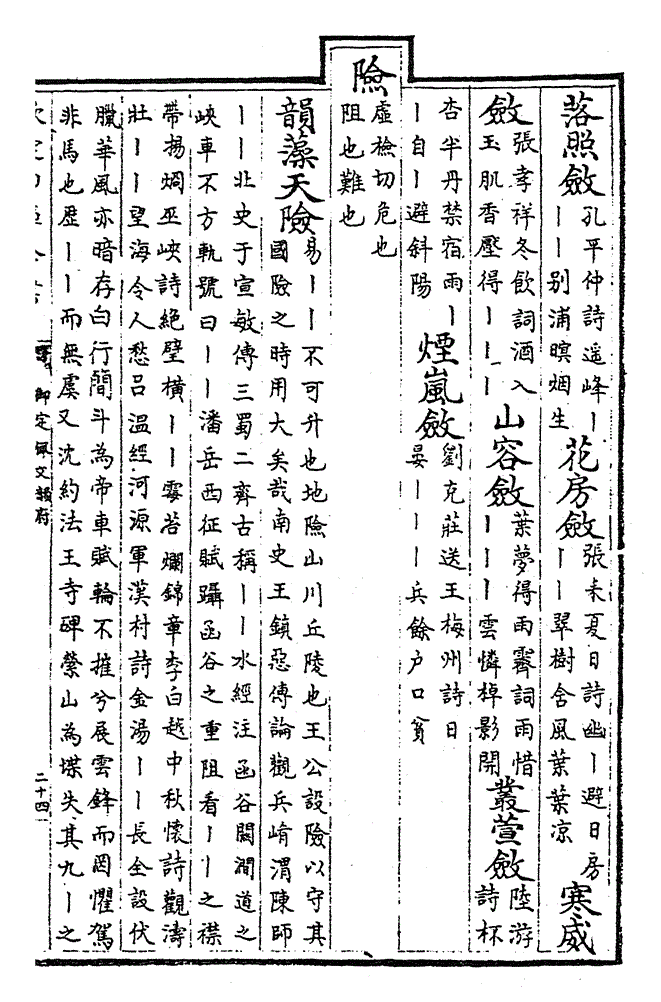 落照斂
孔平仲詩遥峰丨
丨丨别浦暝烟生
花房斂
張耒夏日詩幽丨避日房
丨丨翠樹含風葉葉凉
寒威
斂
張孝祥冬飲詞酒入
玉肌香壓得丨丨丨
山容斂
葉夢得雨霽詞雨惜
丨丨丨雲憐棹影開
叢萱斂
陸游
詩杯
杏半丹禁宿雨丨
丨自丨避斜陽
煙嵐斂
劉克莊送王梅州詩日
晏丨丨丨兵餘户口貧
險
虚檢切危也
阻也難也
韻藻天險
易丨丨不可升也地險山川丘陵也王公設險以守其
國險之時用大矣哉南史王鎮惡傳論觀兵崤渭陳師
丨丨北史于宣敏傳三蜀二齊古稱丨丨水經注函谷關澗道之
峽車不方軌號曰丨丨潘岳西征賦躡函谷之重阻看丨丨之襟
帶楊炯巫峽詩絕壁横丨丨霉苔爛錦章李白越中秋懷詩觀濤
壯丨丨望海令人愁吕温經河源軍漢村詩金湯丨丨長全設伏
臘華風亦暗存白行簡斗為帝車賦輪不摧兮展雲鋒而罔懼駕
非馬也歷丨丨而無虞又沈約法王寺碑縈山為堞失其九丨之
御定佩文韻府
二十四